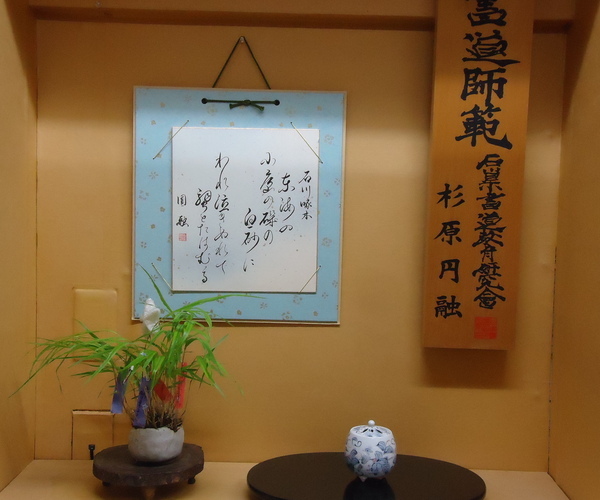 書道師範
石川県書道教育社究会
杉原円融
石川啄木
東海の
小島の磯の
白砂に
われ泣きぬれて
蟹とたはむる
円融